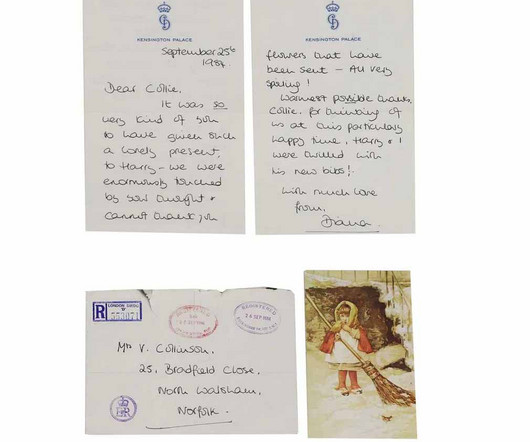 KENSINGTON PALACE
September 25th
1984.
Dear Collie,
It was so
very kind of you
to have given such
a lovely present,
to Harry - we were
enormously touched
by your thought &
cannot thank you
KENSINGTON PALACE
flowers that have
been sent - All very
spoiling!
Warmest possible thanks,
Collie, for thinking of
us at this particularly
happy time, Harry & I
were thrilled with
his new bibs!
With much love
from,
Diana.
R LONDON
REGISTERED
SEP
REGISTERED
SEP
Mrs V. Collinson,
25, Bradfield Close,
North Walsham,
Norfolk.